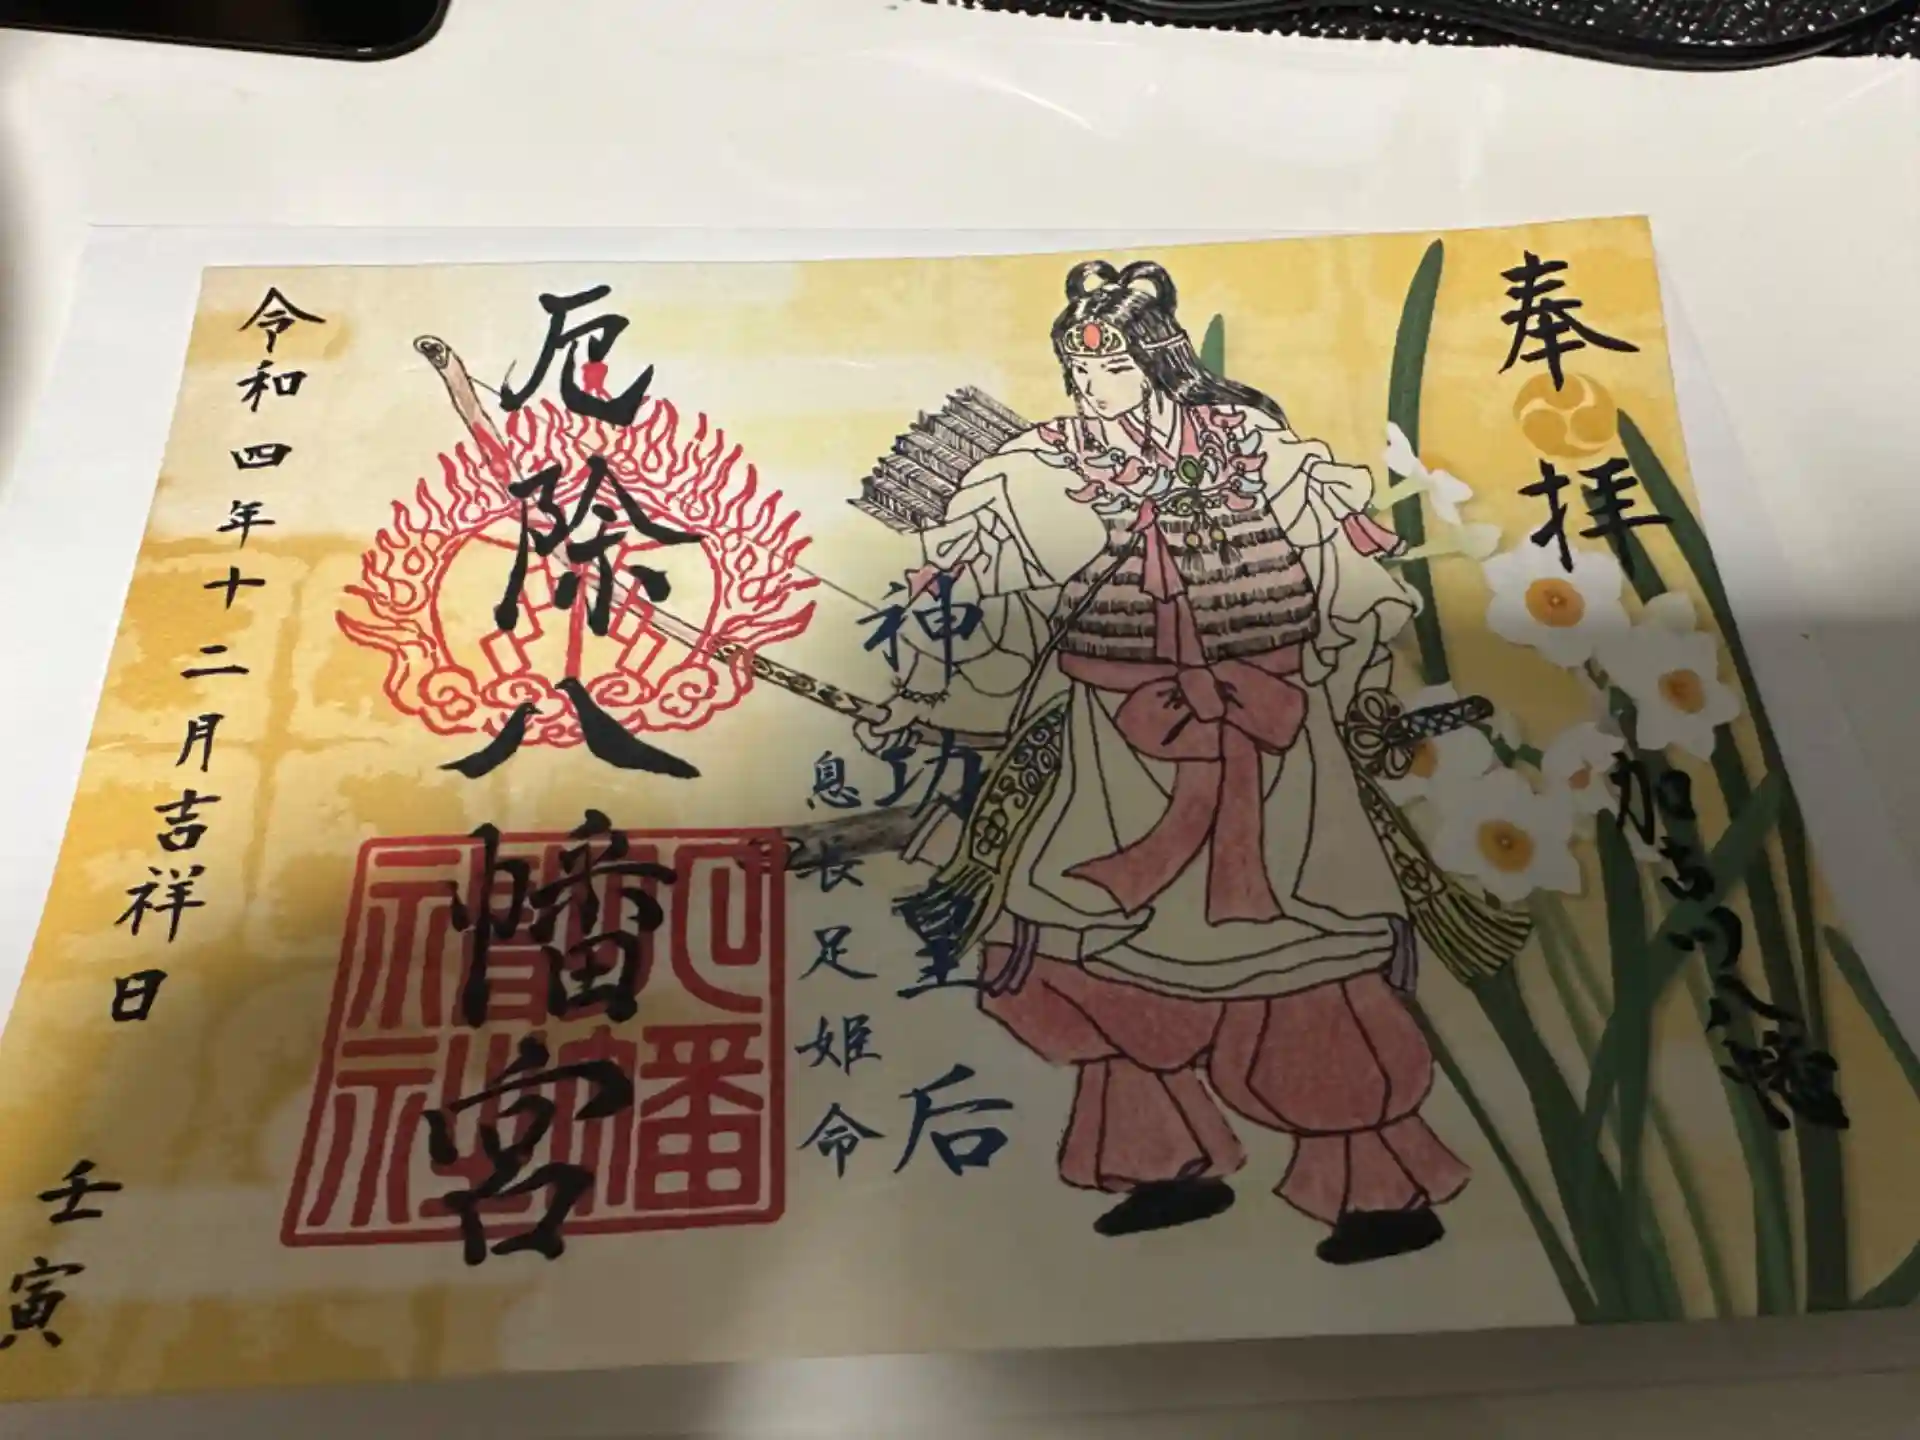 奉拝
加古川八幡
神功皇后
息長足姫命
厄除八幡宮
令和四年十二月吉祥日
壬寅